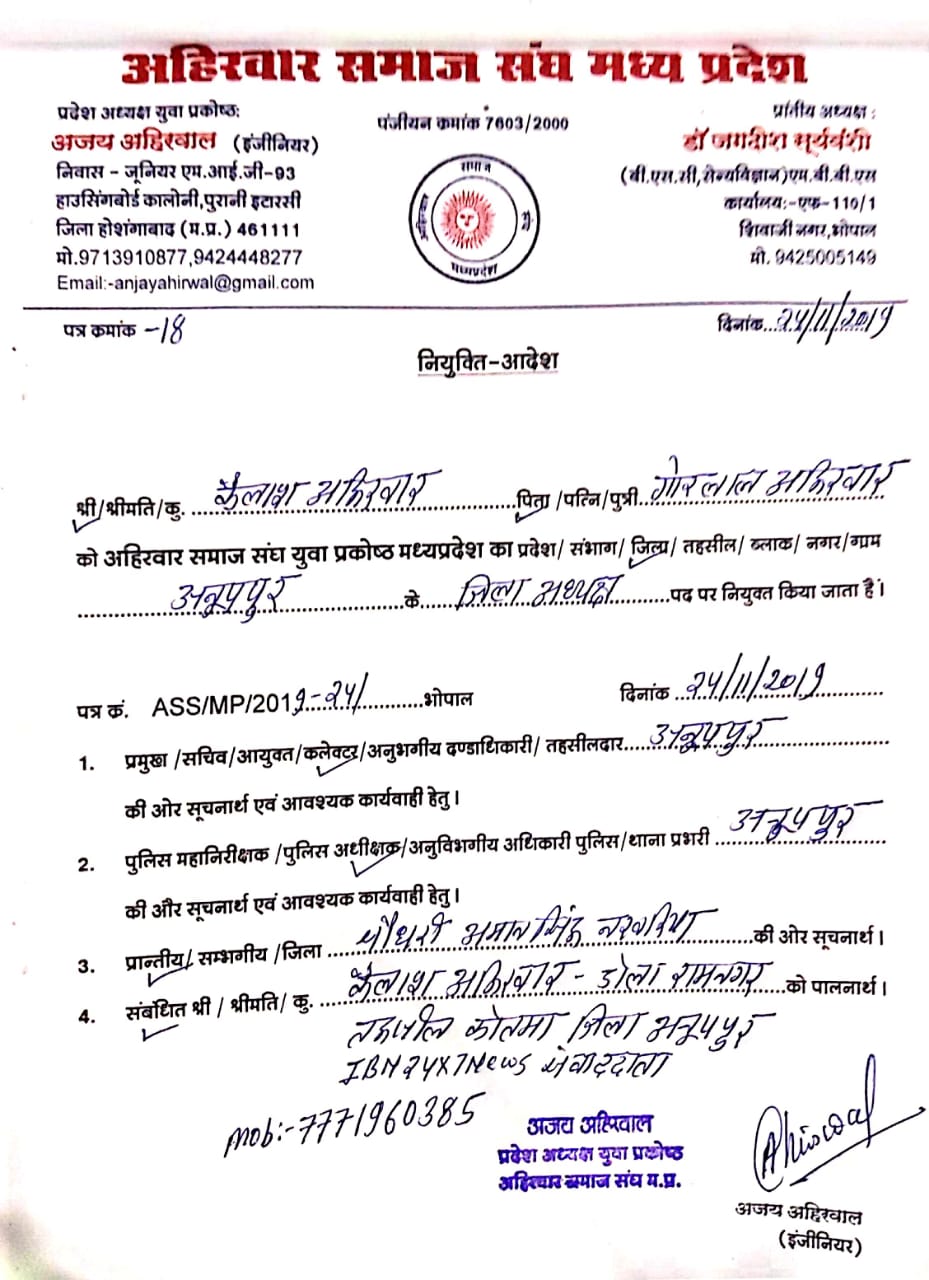 अहिरवार समाज संघ मध्य प्रदेश
प्रदेश अध्यक्ष युवा प्रकोष्ठः
अजय अहिरवाल (इंजीनियर)
निवास - जूनियर एम.आई.जी-93
हाउसिंगबोर्ड कालोनी,पुरानी इटारसी
जिला होशंगाबाद (म.प्र.) 461111
मो.9713910877,9424448277
Email:-anjayahirwal@gmail.com
पंजीयन कमांक 7603/2000
समाज
अहिरवार
संघ
मध्यप्रदेश
प्रांतीय अध्यक्ष :
डॉ जगदीश सूर्यवंशी
(बी.एस.सी,सैन्यविज्ञान)एम.बी.बी.एस
कार्यालय:-एफ-110/1
शिवाजी नगर,भोपाल
मो. 9425005149
पत्र कमांक -18
दिनांक...24/11/2019
नियुक्ति-आदेश
श्री/श्रीमति/कु. कैलाश अहिरवार पिता /पत्नि/पुत्री. गोरेलाल अहिरवार
को अहिरवार समाज संघ युवा प्रकोष्ठ मध्यप्रदेश का प्रदेश/ संभाग/ जिला/ तहसील/ ब्लाक/ नगर/ग्राम
अनूपपुर के जिला अध्यक्ष पद पर नियुक्त किया जाता है।
पत्र कं. ASS/MP/2019-24/ भोपाल दिनांक 24/11/2019
1. प्रमुख /सचिव/आयुक्त/कलेक्टर/अनुभगीय दण्डाधिकारी/ तहसीलदार अनूपपुर
की ओर सूचनार्थ एवं आवश्यक कार्यवाही हेतु।
2. पुलिस महानिरीक्षक /पुलिस अधीक्षक/अनुविभगीय अधिकारी पुलिस/थाना प्रभरी अनूपपुर
की और सूचनार्थ एवं आवश्यक कार्यवाही हेतु।
3. प्रान्तीय/ सम्भगीय /जिला चौधरी अमान सिंह नरवरिया की ओर सूचनार्थ।
4. संबंधित श्री / श्रीमति/ कु. कैलाश अहिरवार - डोला रामनगर को पालनार्थ।
तहसील कोतमा जिला अनूपपुर
IBN24X7News संवाददाता
mob:-7771960385
अजय अहिरवाल
प्रदेश अध्यक्ष युवा प्रकोष्ठ
अहिरवार समाज संघ म.प्र.
Ahirwal
अजय अहिरवाल
(इंजीनियर)